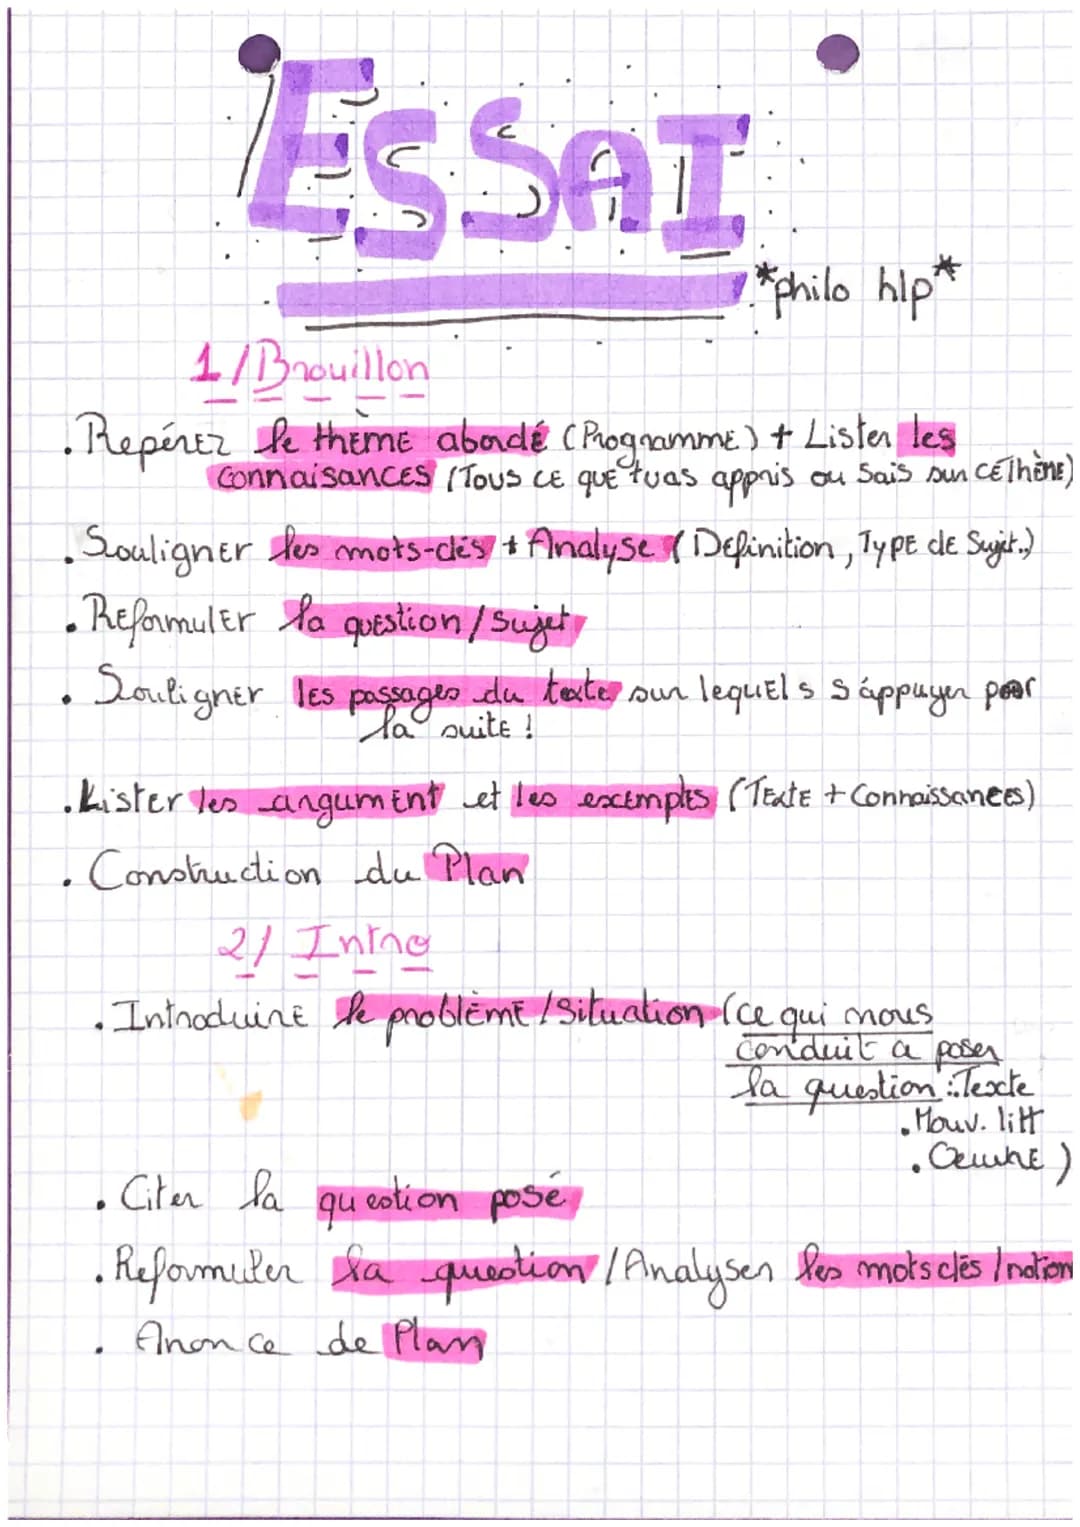 ESSAI
*philo hlp*
1/Brouillon
. Repérez le thème abordé (Programme) + Lister les
connaisances (Tous ce que tu as appris ou sais sur ce thème)
. Souligner les mots-clés + Analyse (Définition, Type de Sujet..)
. Reformuler la question/sujet
. Souligner les passages du texte sur lequels s'appuyer pour
la suite !
. Lister les argument et les exemples (Texte + Connaissances)
. Construction du Plan
2/ Intro
. Introduire le problème/situation (ce qui nous
conduit a poser
la question : . Texte
. Mouv. litt
. Oeuvre)
. Citer la question posé
. Reformuler la question / Analyser les mots clés / notion
. Anonce de Plan